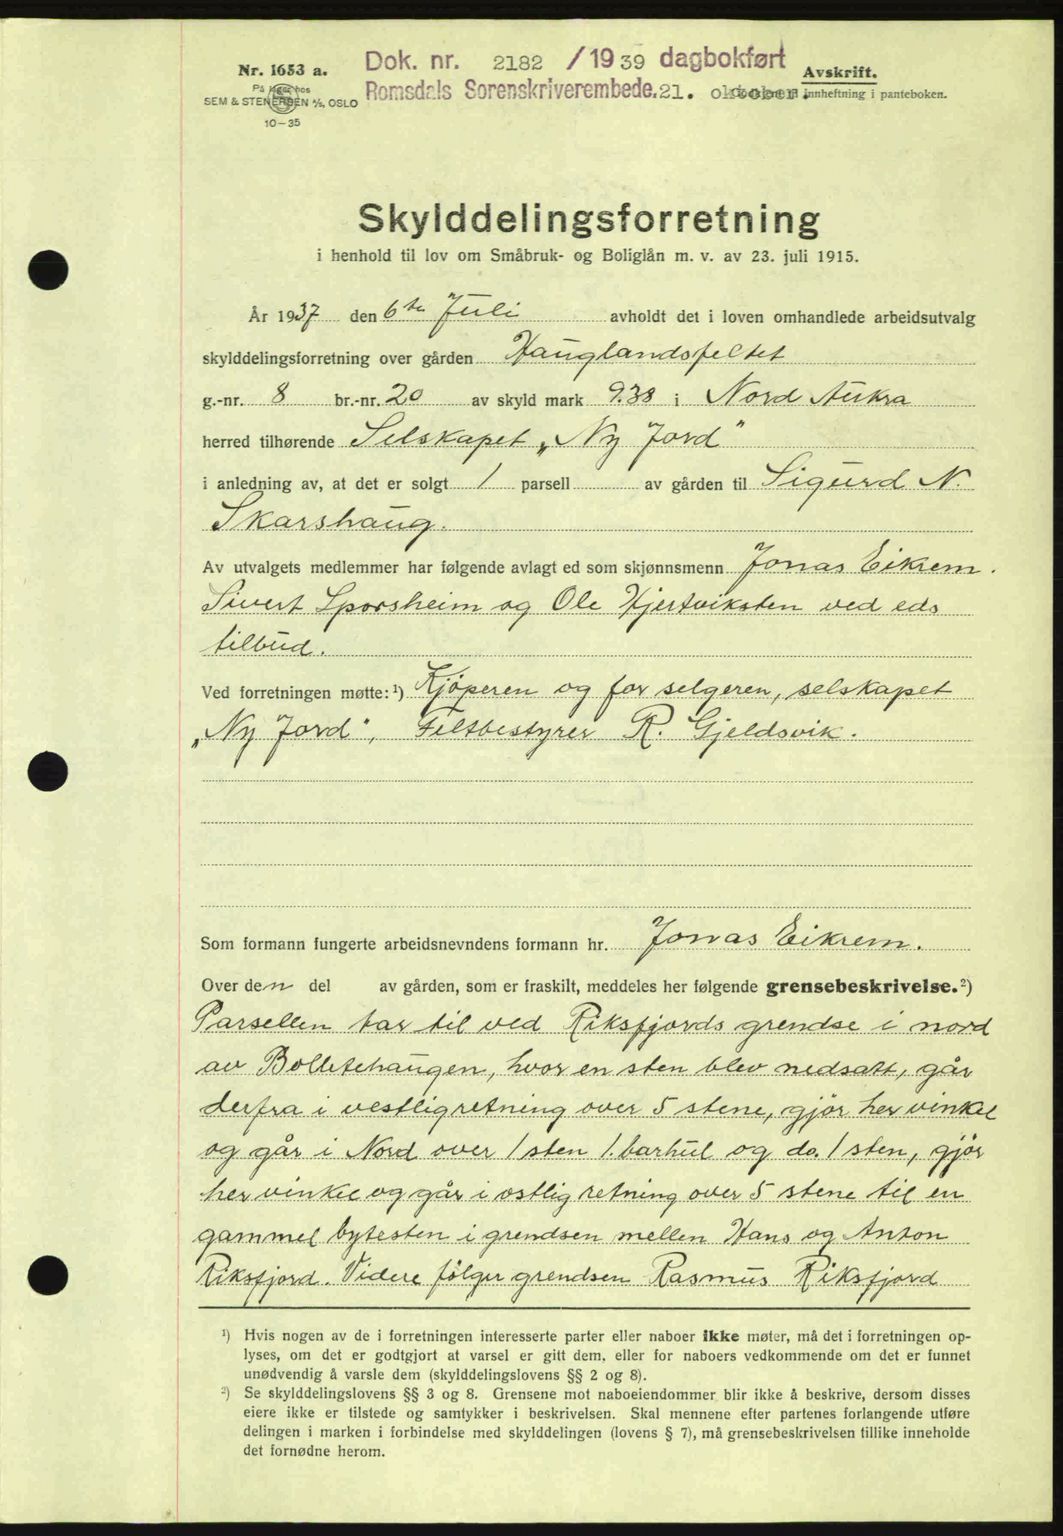 Nr. 1653 a.
På lager hos
SEM & STENERSEN A/S, OSLO
10-35
Dok. nr. 2182 /1939 dagbokført
Romsdals Sorenskriverembede. 21. oktober.
Avskrift.
innheftning i panteboken.
Skylddelingsforretning
i henhold til lov om Småbruk- og Boliglån m. v. av 23. juli 1915.
År 1937 den 6te Juli avholdt det i loven omhandlede arbeidsutvalg
skylddelingsforretning over gården Hauglandsfeltet
g.-nr. 8 br.-nr. 20 av skyld mark 9.38 i Nord Aukra
herred tilhørende Selskapet „Ny Jord"
i anledning av, at det er solgt 1 parsell av gården til Sigurd N.
Skarshaug.
Av utvalgets medlemmer har følgende avlagt ed som skjønnsmenn Jonas Eikrem.
Sivert Sporsheim og Ole Hjertviksten ved eds
tilbud.
Ved forretningen møtte:¹) Kjøperen og for selgeren, selskapet
„Ny Jord", Feltbestyrer R. Gjeldsvik.
Som formann fungerte arbeidsnevndens formann hr. Jonas Eikrem.
Over den del av gården, som er fraskilt, meddeles her følgende grensebeskrivelse.²)
Parsellen tar til ved Riksfjords grendse i nord
av Bolletehaugen, hvor en sten blev nedsatt, går
derfra i vestlig retning over 5 stene, gjør her vinkel
og går i Nord over 1 sten 1. barhul og do. 1 sten, gjør
her vinkel og går i østlig retning over 5 stene til en
gammel bytesten i grendsen mellen Hans og Anton
Riksfjord. Videre følger grendsen Rasmus Riksfjord
¹) Hvis nogen av de i forretningen interesserte parter eller naboer ikke møter, må det i forretningen op-
lyses, om det er godtgjort at varsel er gitt dem, eller for naboers vedkommende om det er funnet
unødvendig å varsle dem (skylddelingslovens §§ 2 og 8).
²) Se skylddelingslovens §§ 3 og 8. Grensene mot naboeiendommer blir ikke å beskrive, dersom disses
eiere ikke er tilstede og samtykker i beskrivelsen. Skal mennene efter partenes forlangende utføre
delingen i marken i forbindelse med skylddelingen (lovens § 7), må grensebeskrivelsen tillike inneholde
det fornødne herom.